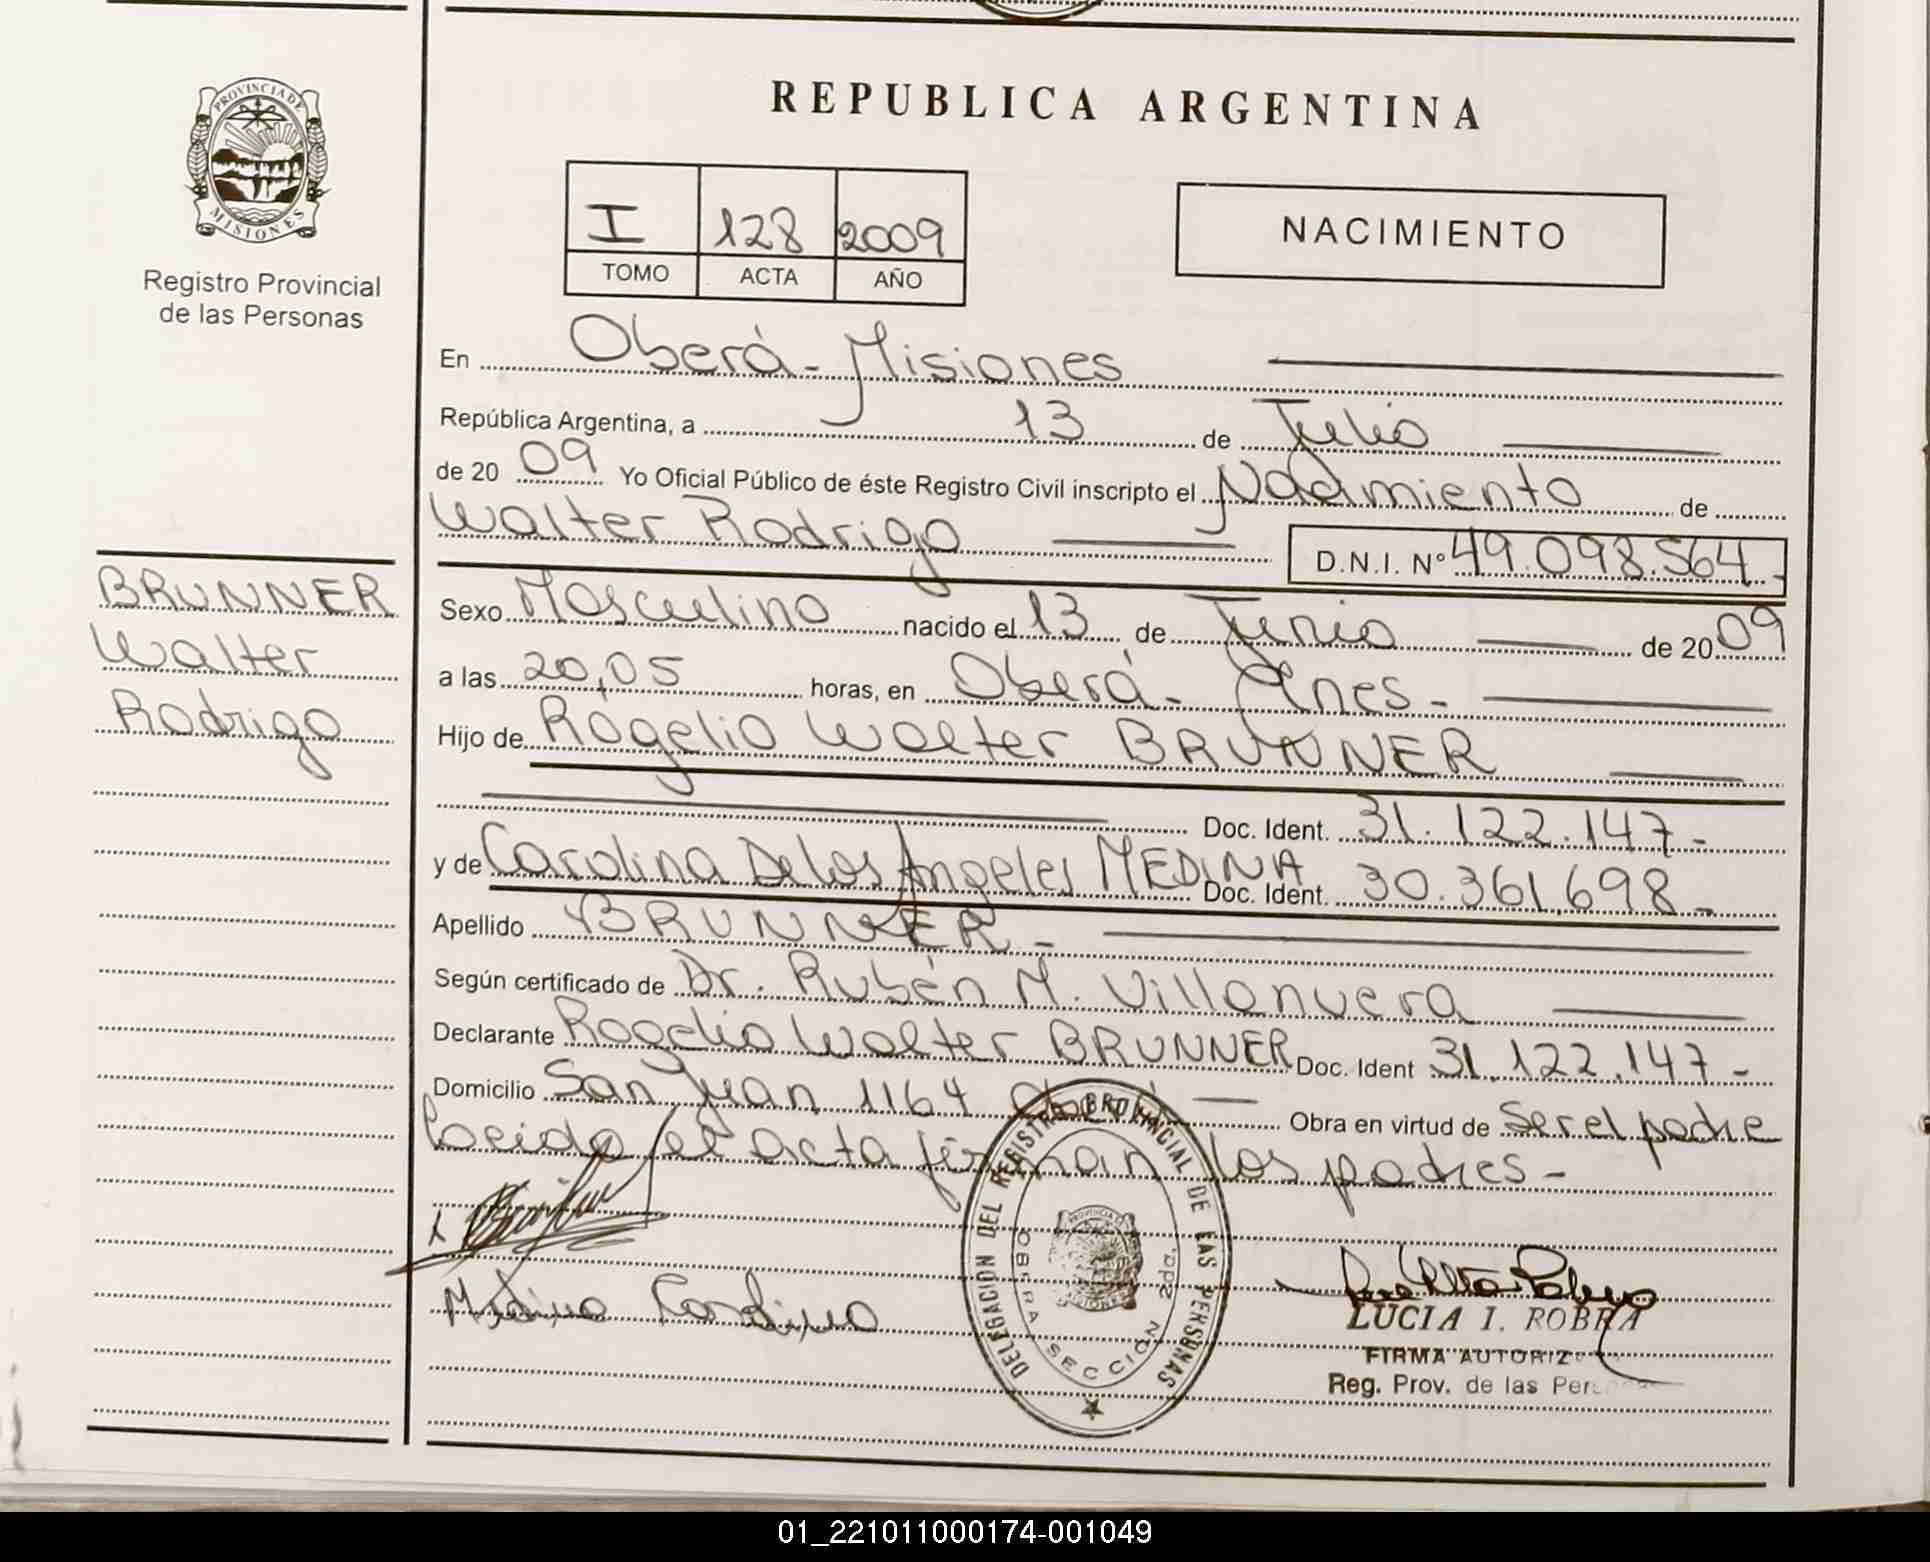 REPUBLICA ARGENTINA
PROVINCIA DE
MISIONES
Registro Provincial
de las Personas
I 128 2009
TOMO ACTA AÑO
NACIMIENTO
En Oberá - Misiones
República Argentina, a 13 de Julio
de 2009 Yo Oficial Público de éste Registro Civil inscripto el Nacimiento de
Walter Rodrigo D.N.I. Nº 49.098.564.-
BRUNNER
Walter
Rodrigo
Sexo Masculino nacido el 13 de Junio de 2009
a las 20,05 horas, en Oberá - Mnes -
Hijo de Rogelio Walter BRUNNER
Doc. Ident. 31.122.147.-
y de Carolina De los Angeles MEDINA Doc. Ident. 30.361.698.-
Apellido BRUNNER -
Según certificado de Dr. Rubén M. Villanueva
Declarante Rogelio Walter BRUNNER Doc. Ident 31.122.147 -
Domicilio San Juan 1164 Oberá Obra en virtud de Ser el padre
Leída el acta firman los padres -
Medina Carolina
DELEGACION DEL REGISTRO PROVINCIAL DE LAS PERSONAS
OBERA SECCIÓN 2da.
PROVINCIA DE
MISIONES
LUCIA I. ROBRA
FIRMA AUTORIZ
Reg. Prov. de las Personas
01_221011000174-001049